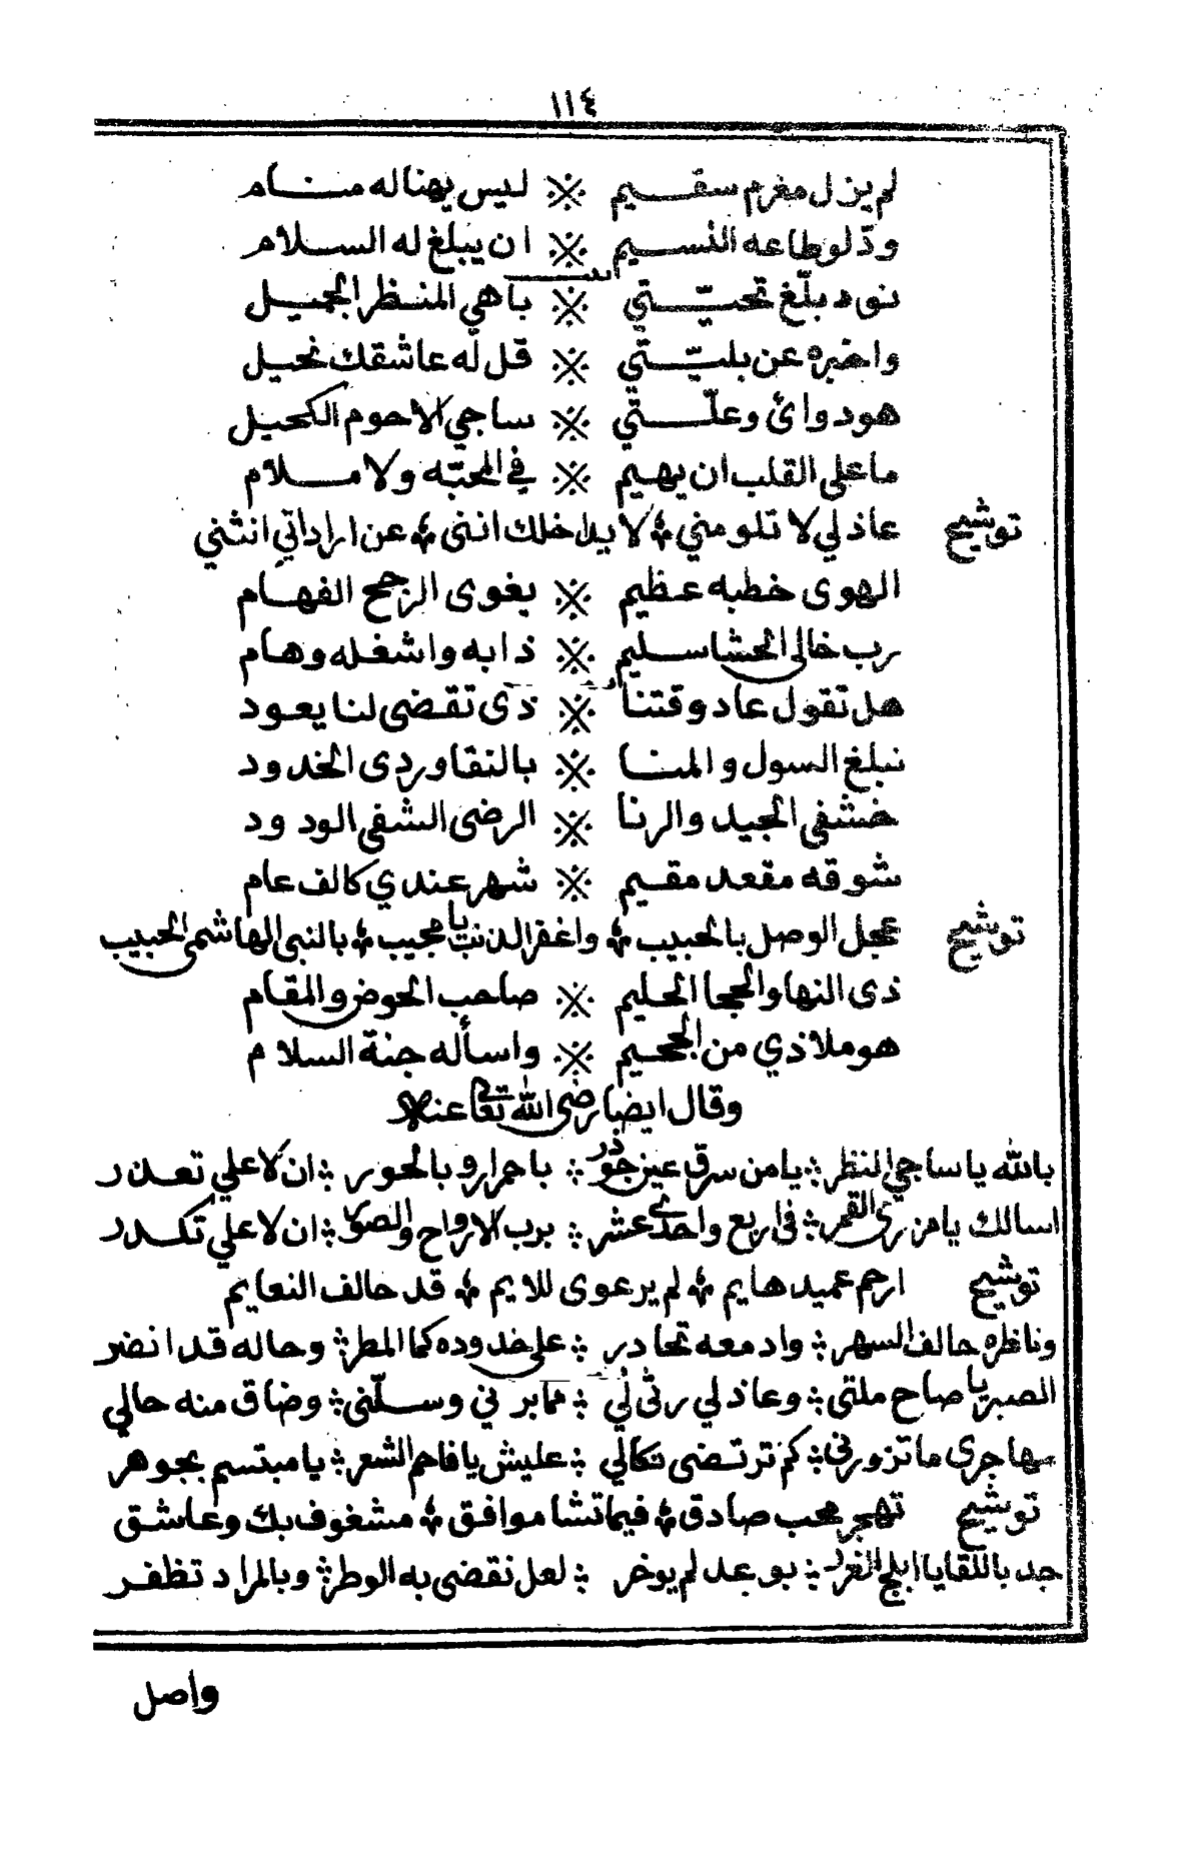 ١١٤
لم يزل مغرم سقـيم ※ ليس يهنا له منـام
ودّ لو طاعه النسـيم ※ ان يبلغ له السـلام
نود بلّغ تحيـّتي ※ باهي المنظر الجميـل
واخبره عن بليـّتي ※ قل له عاشقك نحيـل
هو دوائ وعلّـتي ※ ساجي الاحوم الكحيل
ما على القلب ان يهيم ※ في المحبّه ولا مـلام
توشيح عاذلي لا تلومني ؞ لا يداخلك انني ؞ عن اراداتي انثني
الهوى خطبه عظيم ※ يغوى الرجح الفهـام
رب خالي الحشا سـليم ※ ذا به واشغله وهـام
هل تقول عاد وقتنا ※ ذى تقضى لنا يعـود
نبلغ السول والمنـا ※ بالنقا وردى الخدود
خشفى الجيد والرنا ※ الرضى الشفى الودود
شوقه مقعد مقـيم ※ شهر عندي كالف عام
توشيح عجل الوصل بالحبيب ؞ واغفر الذنب يا مجيب ؞ بالنبى الهاشمى الحبيب
ذى النها والحجا الحليم ※ صاحب الحوض والمقـام
هو ملاذي من الجحـيم ※ واسأله جنة السلام
وقال ايضا رضى الله تعالى عنه
بالله يا ساجي النظر ؞ يا من سرق عين جوذر ؞ باحمراره وبالحور ؞ ان لا علي تعذر
اسالك يا من زرى القمر ؞ فى اربع واحدى عشر ؞ برب الارواح والصور ؞ ان لا علي تكـدر
توشيح ارحم عميد هايم ؞ لم يرعوى للايم ؞ قد حالف النعايم
وناظره حالف السهر ؞ وادمعه تحادر ؞ على خدوده كما المطر ؞ وحاله قد انضر
الصبر يا صاح ملتى ؞ وعاذلي رثى لي ؞ مما برني وسـلّنى ؞ وضاق منه حالي
هاجرى ما تزورنى ؞ كم ترتـضى نكالي ؞ عليش يا فاحم الشعر ؞ يا مبتسم بجوهر
توشيح تهجر محب صادق ؞ فيما تشا موافق ؞ مشغوف بك وعاشـق
جد باللقا يا ابلج الغرر ؞ بوعد لم يوخر ؞ لعل نقضى به الوطر ؞ وبالمراد تظفـر
واصل